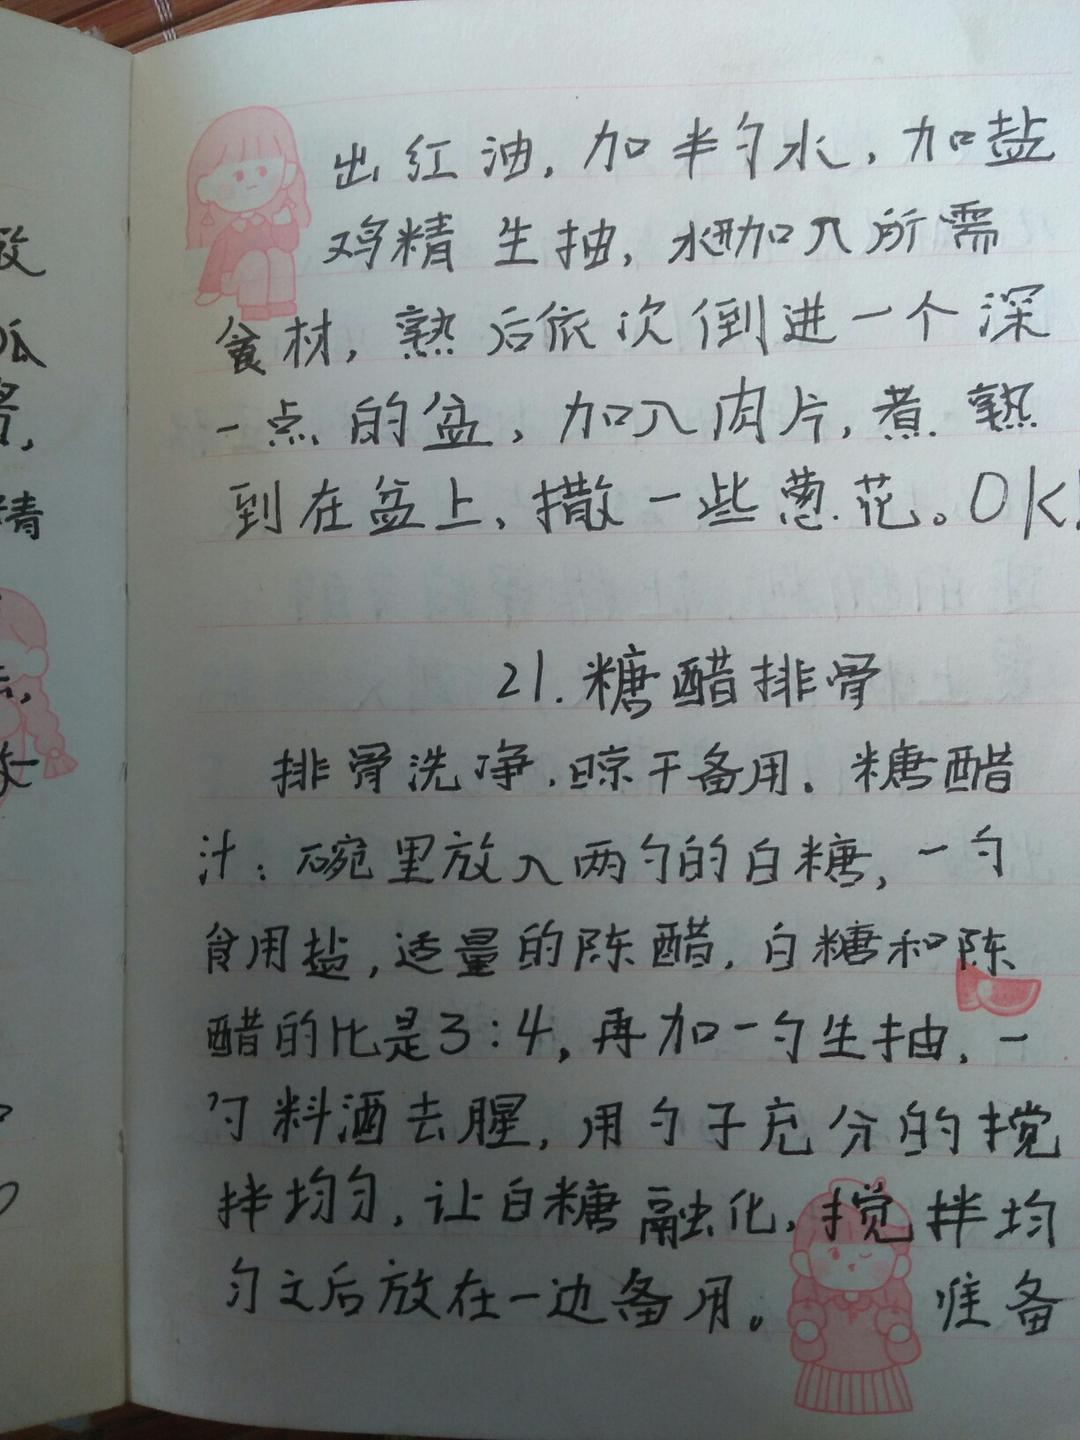 出红油,加半勺水,加盐
鸡精 生抽,水开加入所需
食材,熟后依次倒进一个深
一点的盆,加入肉片,煮熟
到在盆上,撒一些葱花。OK!
21.糖醋排骨
排骨洗净,晾干备用。糖醋
汁:碗里放入两勺的白糖,一勺
食用盐,适量的陈醋,白糖和陈
醋的比是3:4,再加一勺生抽,一
勺料酒去腥,用勺子充分的搅
拌均匀,让白糖融化,搅拌均
匀之后放在一边备用。 准备